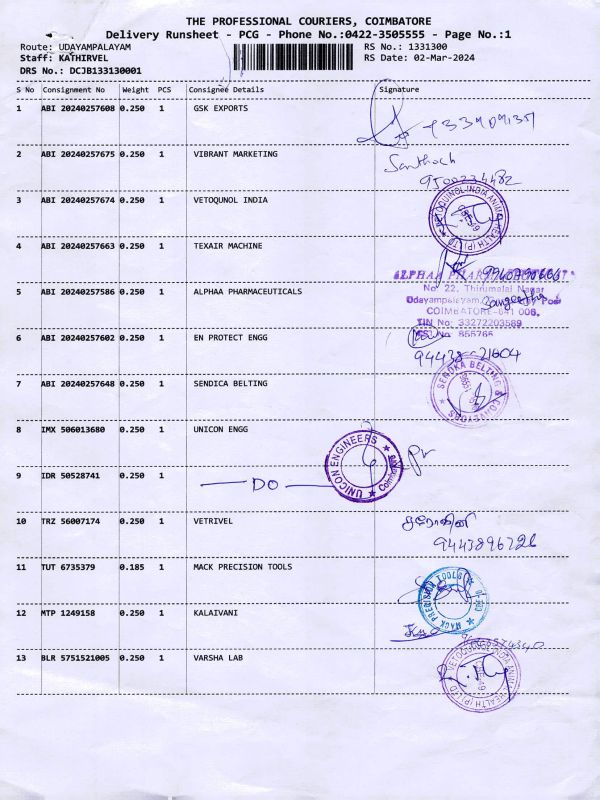 THE PROFESSIONAL COURIERS, COIMBATORE
Delivery Runsheet - PCG - Phone No.:0422-3505555 - Page No.:1
Route: UDAYAMPALAYAM RS No.: 1331300
Staff: KATHIRVEL RS Date: 02-Mar-2024
DRS No.: DCJB133130001
S No Consignment No Weight PCS Consignee Details Signature
1 ABI 20240257608 0.250 1 GSK EXPORTS
2 ABI 20240257675 0.250 1 VIBRANT MARKETING Santhosh
9500234482
3 ABI 20240257674 0.250 1 VETOQUNOL INDIA
VETOQUINOL INDIA ANIMAL HEALTH (P) LTD
4 ABI 20240257663 0.250 1 TEXAIR MACHINE
ALPHAA
No. 22, Thirumalai Nagar
5 ABI 20240257586 0.250 1 ALPHAA PHARMACEUTICALS
Udayampalayam Sangeetha Post
COIMBATORE-641 006.
TIN No: 33272203589
855766
6 ABI 20240257602 0.250 1 EN PROTECT ENGG
94438-21604
7 ABI 20240257648 0.250 1 SENDICA BELTING
BELTING & CONVEYORS
8 IMX 506013680 0.250 1 UNICON ENGG
UNICON ENGINEERS
9 IDR 50528741 0.250 1
DO
10 TRZ 56007174 0.250 1 VETRIVEL சரோஜினி
9443896726
11 TUT 6735379 0.185 1 MACK PRECISION TOOLS
MACK PRECISION TOOLS
12 MTP 1249158 0.250 1 KALAIVANI
13 BLR 5751521005 0.250 1 VARSHA LAB
VETOQUINOL INDIA ANIMAL HEALTH (P) LTD